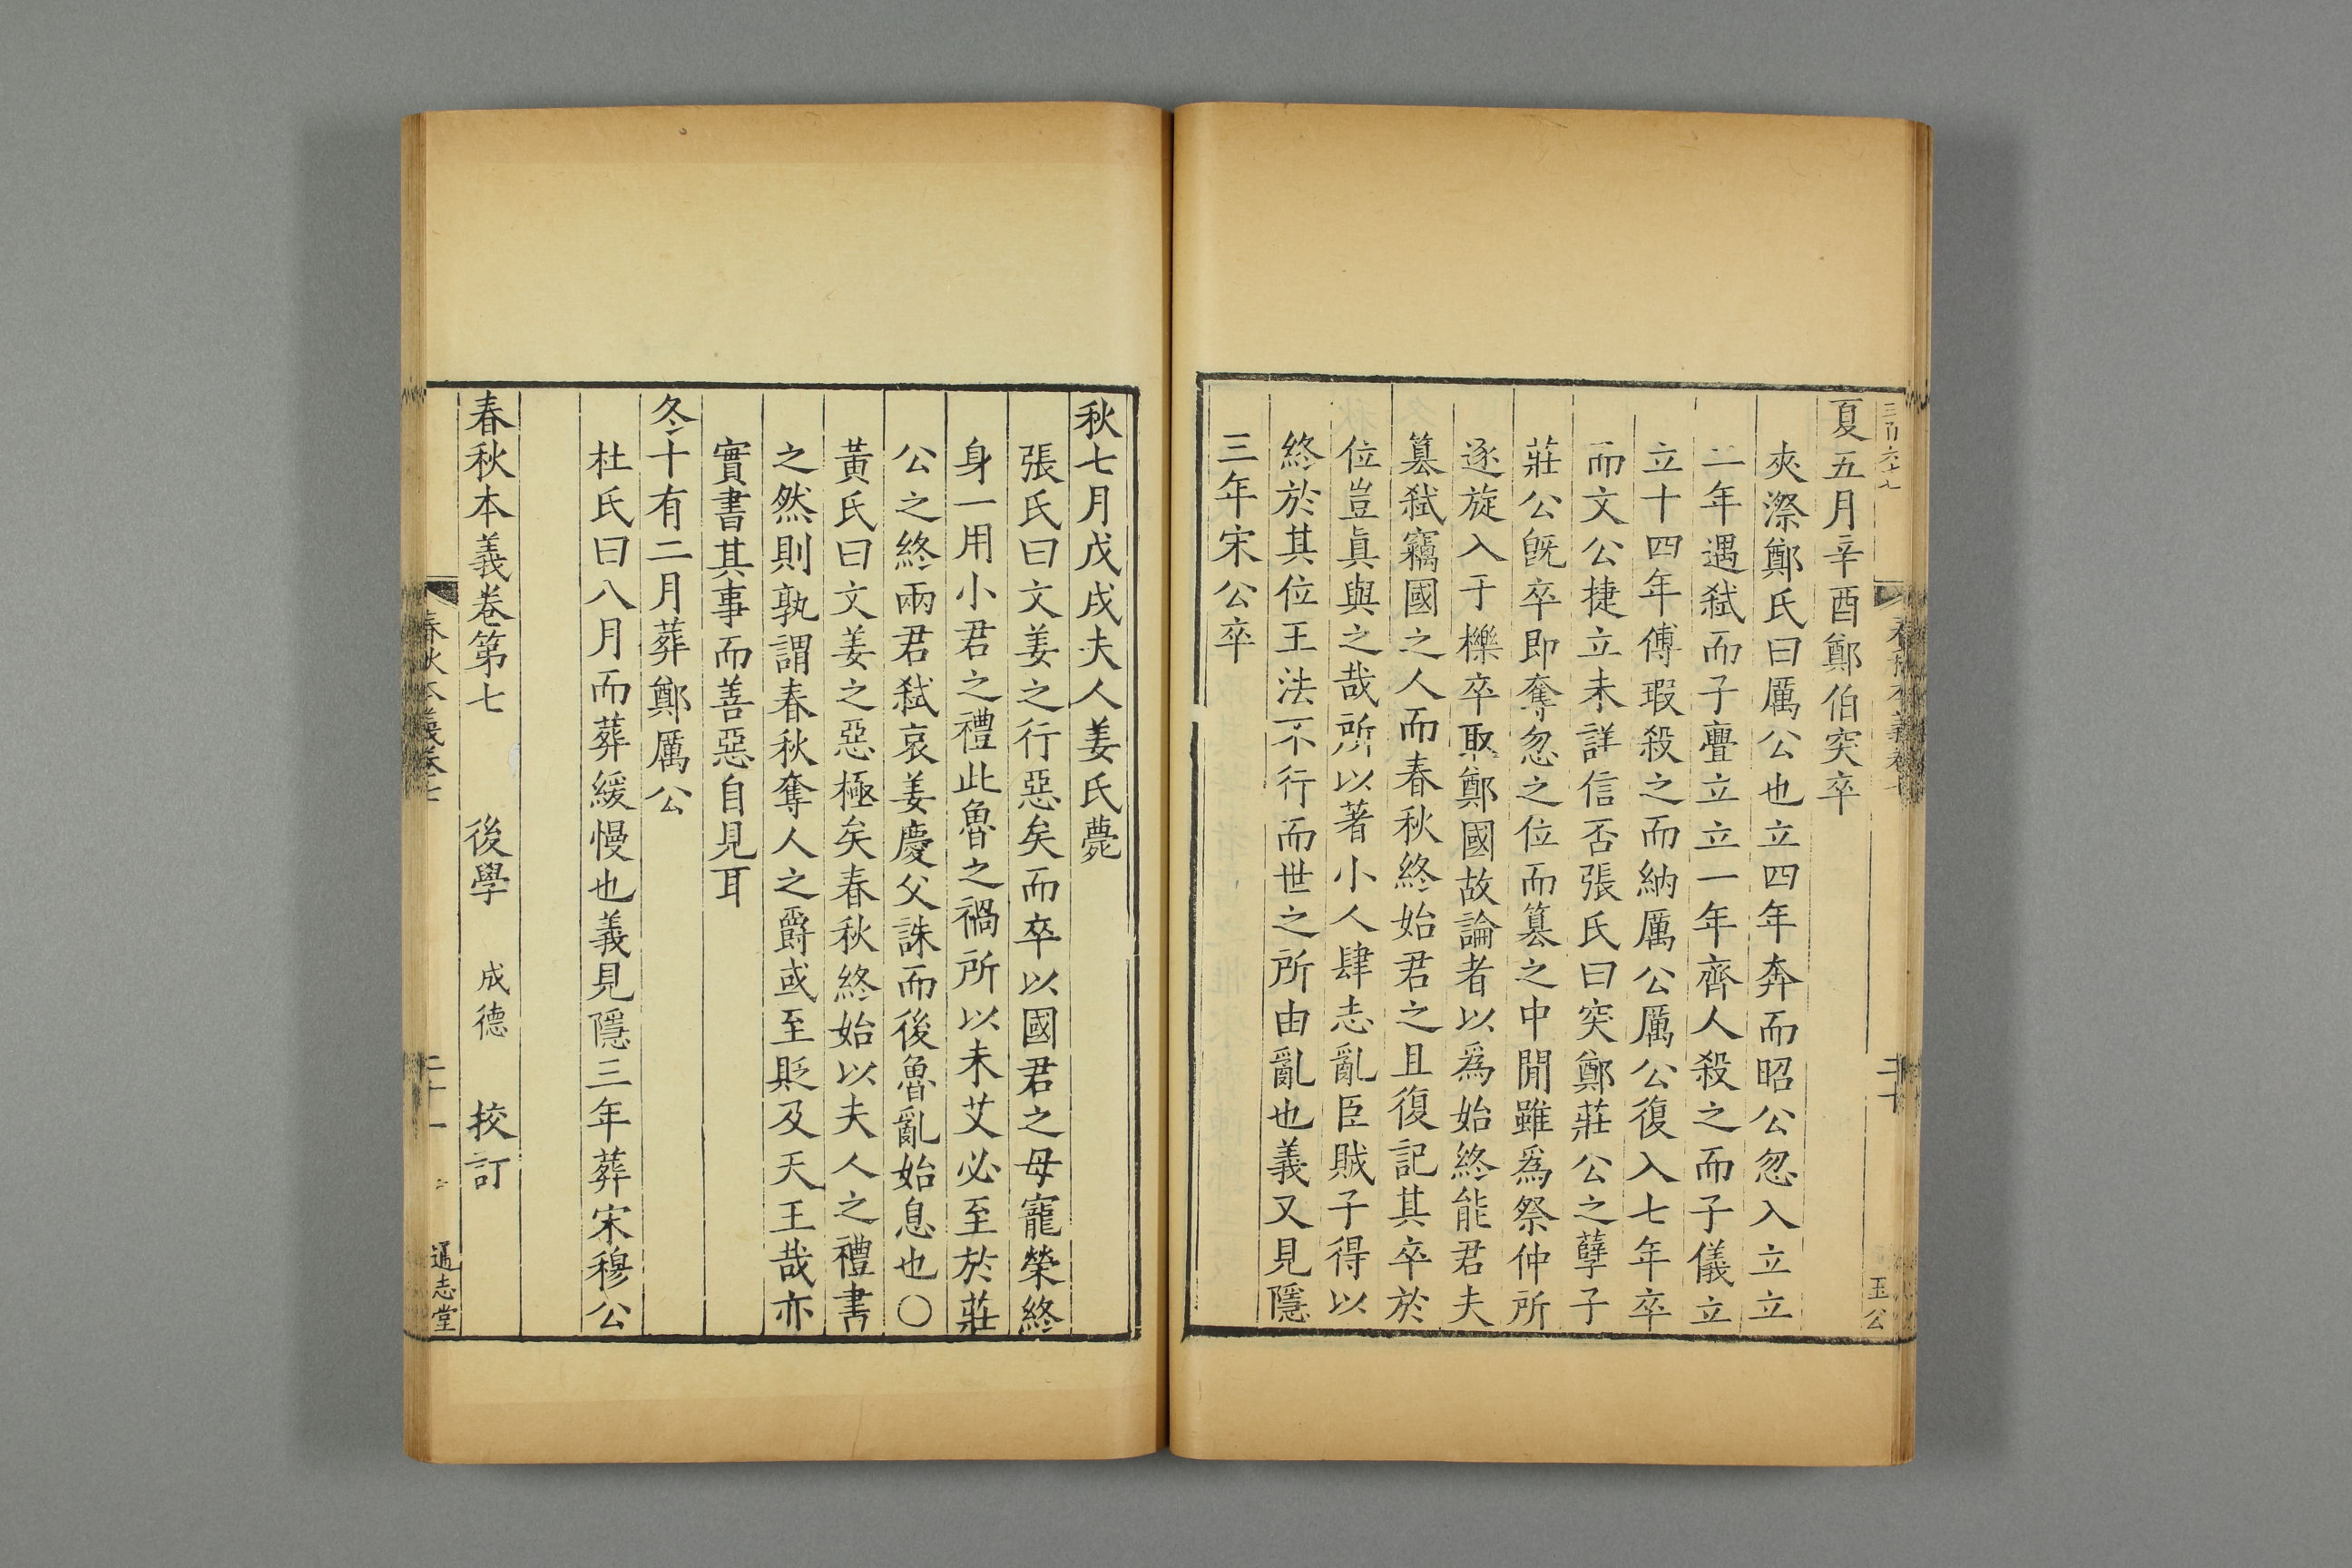 夏五月辛酉鄭伯突卒
夾漈鄭氏曰厲公也立四年奔而昭公忽入立立
二年遇弑而子亹立立一年齊人殺之而子儀立
立十四年傅瑕殺之而納厲公厲公復入七年卒
而文公捷立未詳信否張氏曰突鄭莊公之孽子
莊公旣卒即奪忽之位而篡之中閒雖爲祭仲所
逐旋入于櫟卒取鄭國故論者以爲始終能君夫
篡弑竊國之人而春秋終始君之且復記其卒於
位豈眞與之哉所以著小人肆志亂臣賊子得以
終於其位王法不行而世之所由亂也義又見隱
三年宋公卒
二十
玉公
秋七月戊戌夫人姜氏薨
張氏曰文姜之行惡矣而卒以國君之母寵榮終
身一用小君之禮此魯之禍所以未艾必至於莊
公之終兩君弑哀姜慶父誅而後魯亂始息也○
黃氏曰文姜之惡極矣春秋終始以夫人之禮書
之然則孰謂春秋奪人之爵或至貶及天王哉亦
實書其事而善惡自見耳
冬十有二月葬鄭厲公
杜氏曰八月而葬緩慢也義見隱三年葬宋穆公
春秋本義卷第七 後學 成德 挍訂
春秋本義卷七
二十一
通志堂